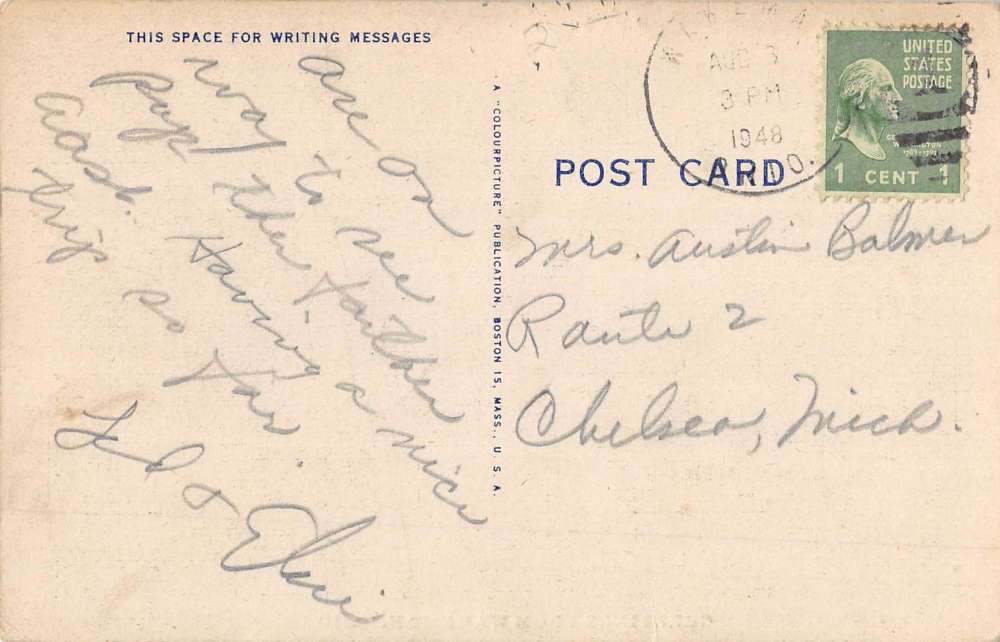 THIS SPACE FOR WRITING MESSAGES
are on
way to see
pup then farther
east. Having a nice
trip so far.
Ed & Elsie
A "COLOURPICTURE" PUBLICATION, BOSTON 15, MASS., U.S.A.
AUG 3
3 PM
1948
OHIO.
UNITED
STATES
POSTAGE
1 CENT 1
POST CARD
Mrs. Austin Balmer
Route 2
Chelsea, Mich.